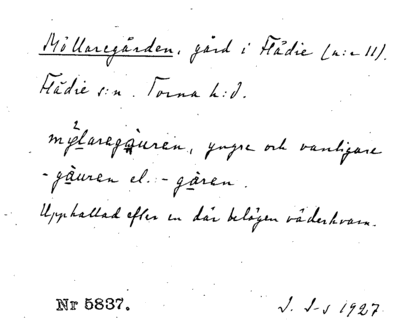 Möllaregården, gård i Flädie (n:r 11).
Flädie s:n. Torna h:d.
mýlaregäuren, yngre och vanligare
-gäuren el. -gären.
Upphallad efter en där belägen väderkvarn.
Nr 5837.
J. I-s 1927